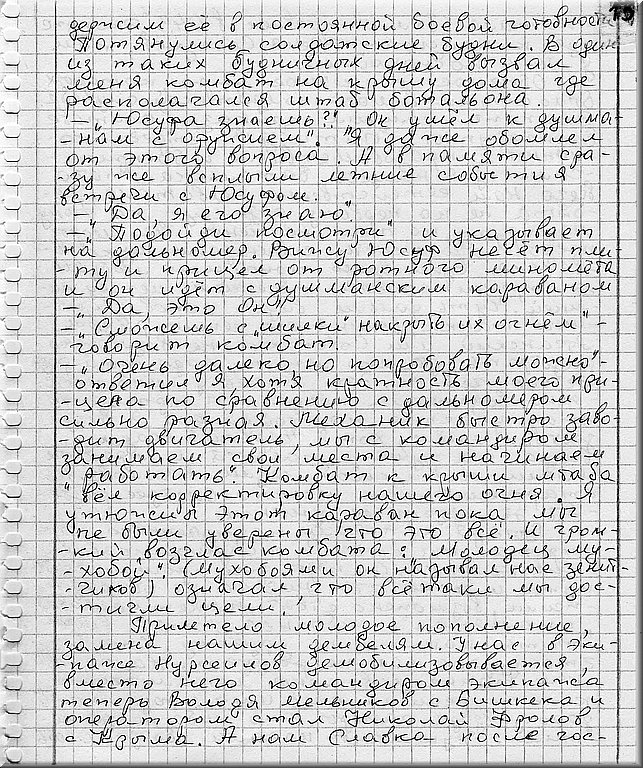 держим её в постоянной боевой готовности
Потянулись солдатские будни. В один
из таких будничных дней вызвал
меня комбат на крышу дома где
располагался штабботальона.
–„Юсуфа знаешь?!" Он ушёл к душма-
-нам с оружием". "Я даже обомлел
от этого вопроса. А в памяти сра-
-зу же всплыли летние события
встречи с Юсуфом.
–„Да, я его знаю".
–„Подойди посмотри" и указывает
на дальномер. Вижу Юсуф несёт пли-
-ту и прицел от ротного миномёта
и он идёт с душманским караваном
–„Да, это он!"
–„Сможешь с „шилки" накрыть их огнём"-
говорит комбат.
–„Очень далеко, но попробовать можно"-
ответил я, хотя кратность моего при-
-цела по сравнению с дальномером
сильно разная. Механик быстро заво-
-дит двигатель, мы с командиром
занимаем свои места и начинаем
"работать". Комбат с крыши штаба
вёл корректировку нашего огня. Я
утюжил этот караван пока мы
не были уверены, что это всё. И гром-
-кий возглас комбата: „Молодец му-
-хобой". (Мухобоями он называл нас зенит-
-чиков) означал, что всё таки мы дос-
-тигли цели.
Прилетело молодое пополнение,
замена нашим дембелям. У нас в эки-
-паже Нурсеинов демобилизовывается,
вместо него командиром экипажа
теперь Володя Мельников с Бишкека и
оператором стал Николай Фролов
с Крыма. А нам Славка после гос-